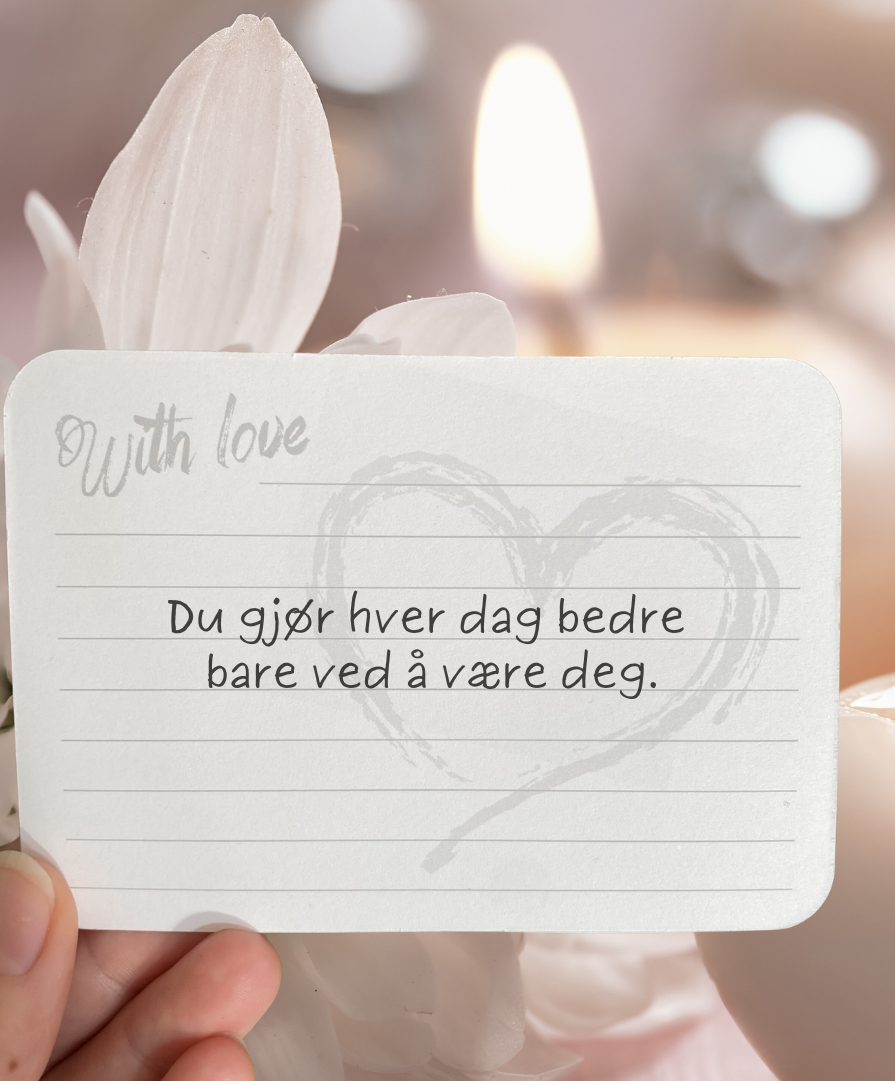 With love
Du gjør hver dag bedre
bare ved å være deg.